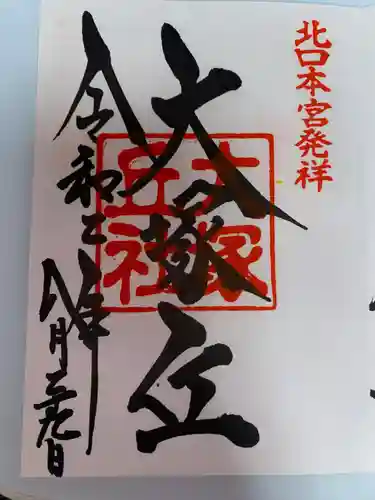 北口本宮発祥
大塚丘
大塚
丘社
令和二年
八月 九日